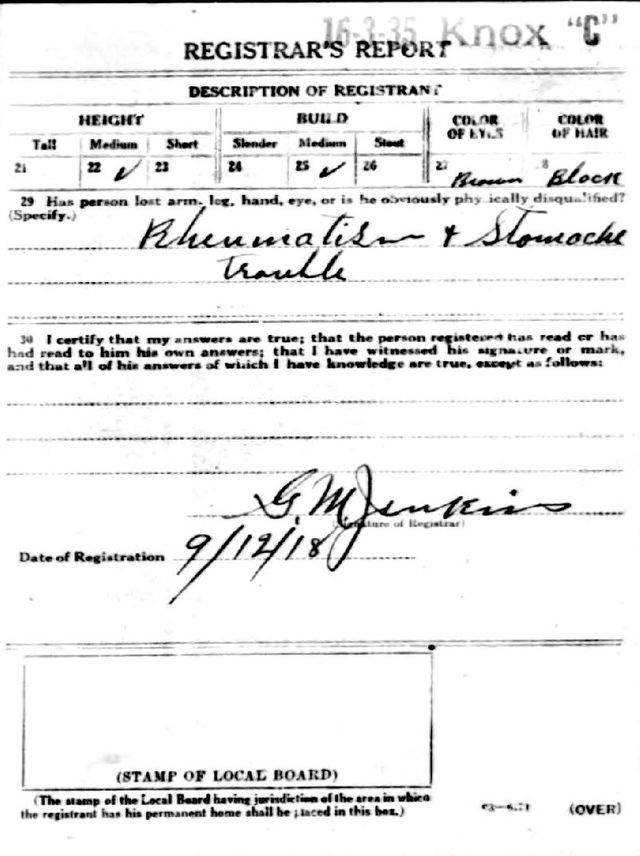 16-3-35 Knox "C"
REGISTRAR'S REPORT
DESCRIPTION OF REGISTRANT
HEIGHT BUILD COLOR OF EYES COLOR OF HAIR
Tall Medium Short Slender Medium Stout
21 22 ✓ 23 24 25 ✓ 26 27 Brown 8 Black
29 Has person lost arm, leg, hand, eye, or is he obviously physically disqualified?
(Specify.)
Rheumatism & Stomache
trouble
30 I certify that my answers are true; that the person registered has read or has
had read to him his own answers; that I have witnessed his signature or mark,
and that all of his answers of which I have knowledge are true, except as follows:
G. M. Jenkins
(Signature of Registrar)
Date of Registration 9/12/18
(STAMP OF LOCAL BOARD)
(The stamp of the Local Board having jurisdiction of the area in which
the registrant has his permanent home shall be placed in this box.)
(OVER)